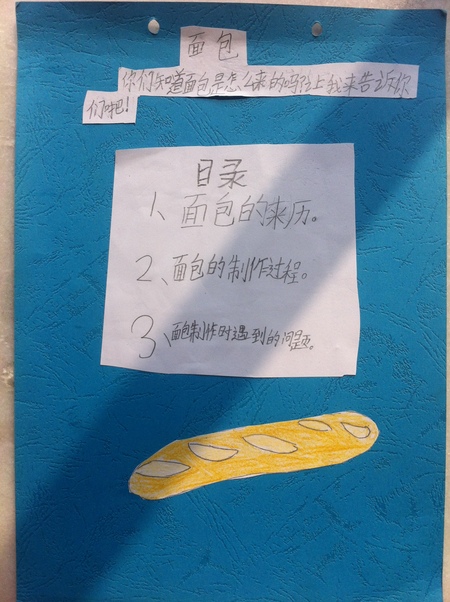 面包
你们知道面包是怎么来的吗上我来告诉你
们吧!
目录
1、面包的来历。
2、面包的制作过程。
3、面包制作时遇到的问题。